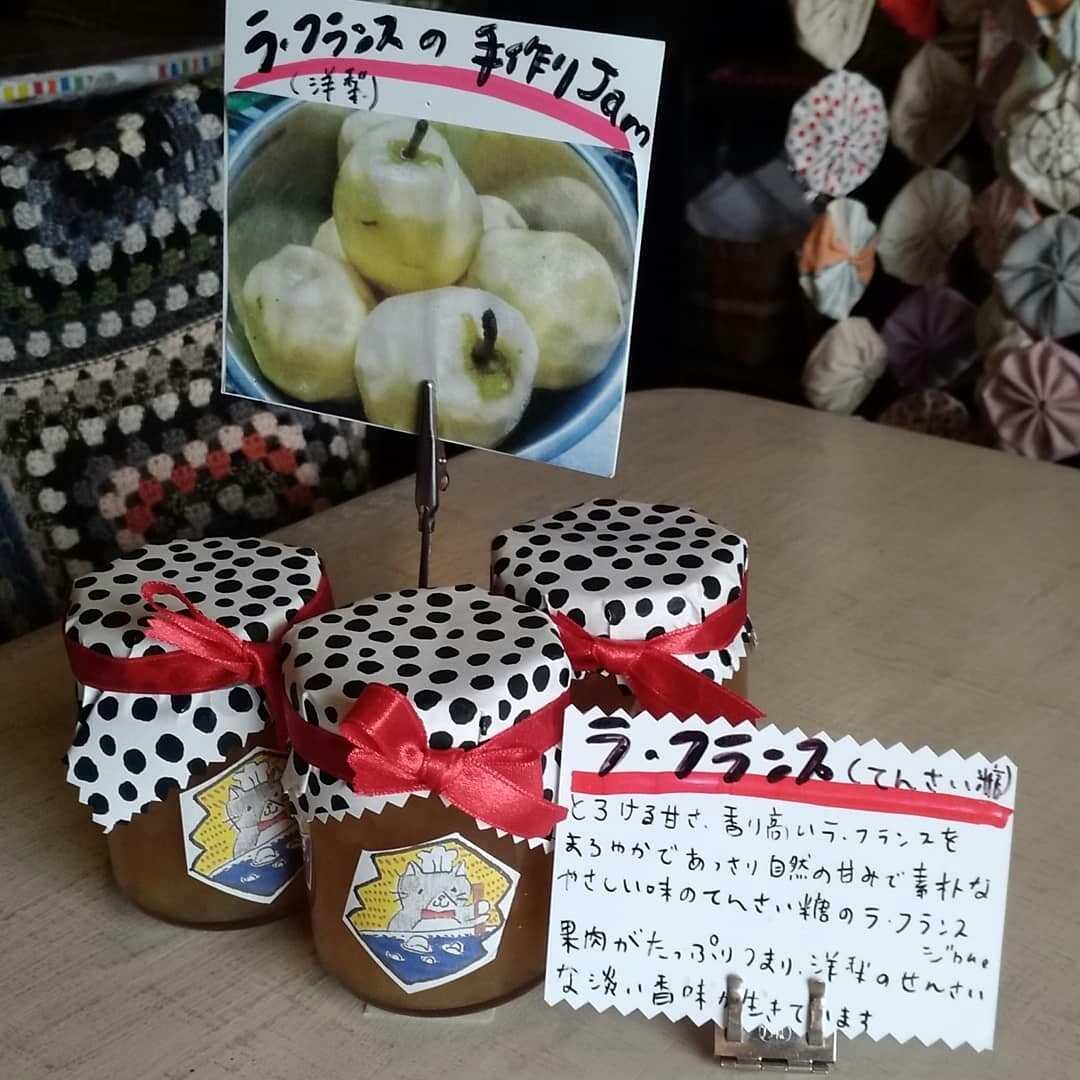 ラ・フランスの手作りJam
(洋梨)
ラ・フランス(てんさい糖)
とろける甘さ、香り高いラ・フランスを
まろやかであっさり自然の甘みで素朴な
やさしい味のてんさい糖のラ・フランス
果肉がたっぷりつまり、洋梨のせんさい
な淡い香味が生きています